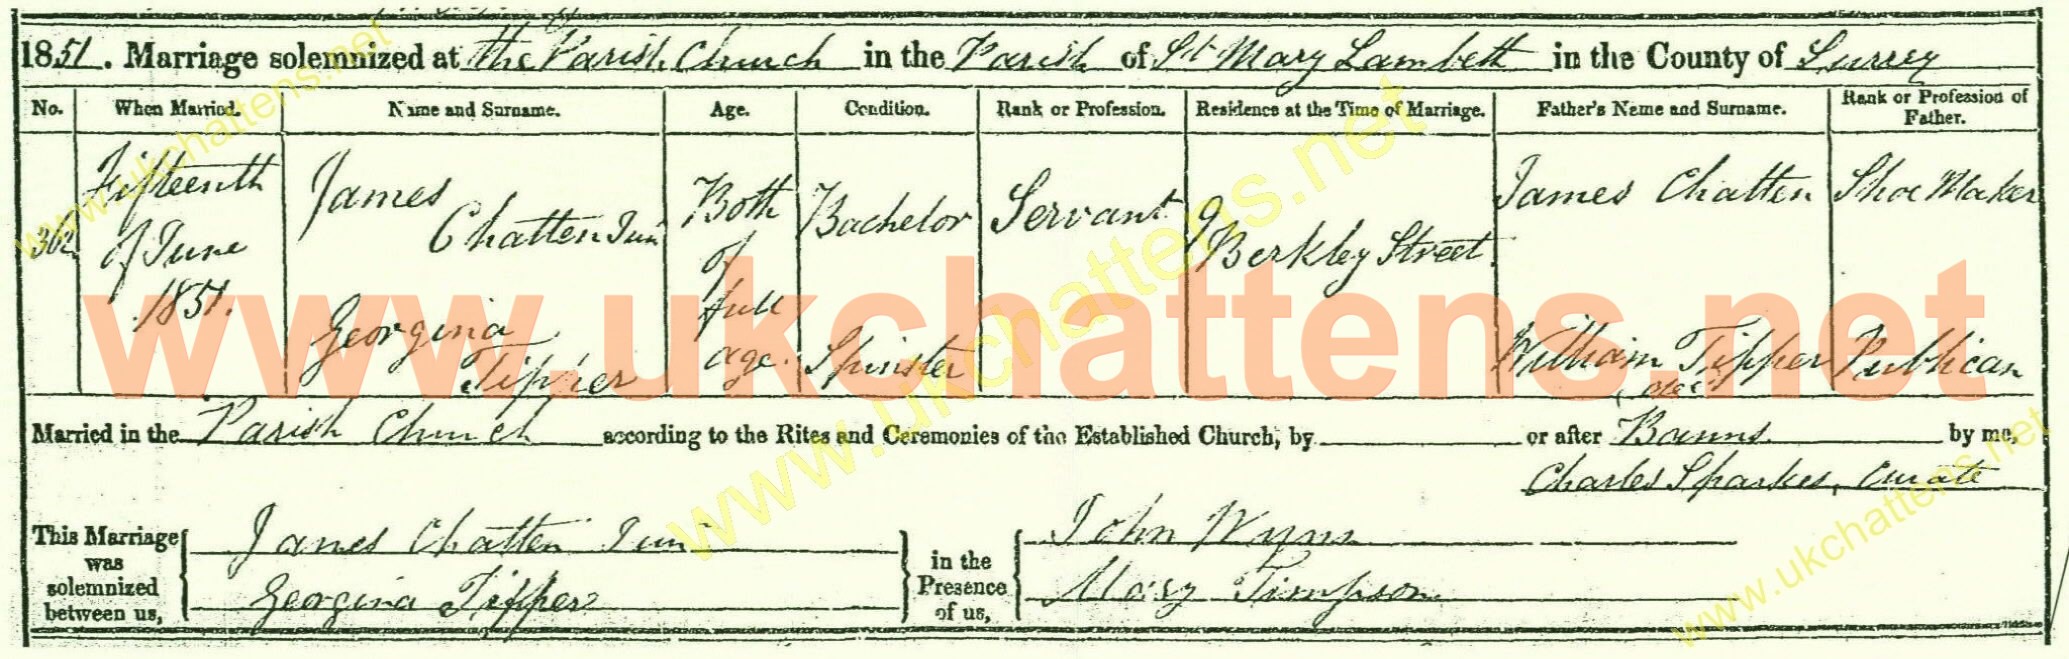 1851. Marriage solemnized at the Parish Church in the Parish of St Mary Lambeth in the County of Surrey
No. When Married. Name and Surname. Age. Condition. Rank or Profession. Residence at the Time of Marriage. Father's Name and Surname. Rank or Profession of Father.
362 Fifteenth of June 1851. James Chatten Jun Both of full age. Bachelor Servant 9 Berkley Street James Chatten Shoe Maker
Georgina Tipper Spinster William Tipper decd Publican
Married in the Parish Church according to the Rites and Ceremonies of the Established Church, by or after Banns by me,
Charles Sparkes, Curate
This Marriage was solemnized between us, James Chatten Jun in the Presence of us, John Wynn
Georgina Tipper Mary Timpson
www.ukchattens.net
www.ukchattens.net
www.ukchattens.net
www.ukchattens.net